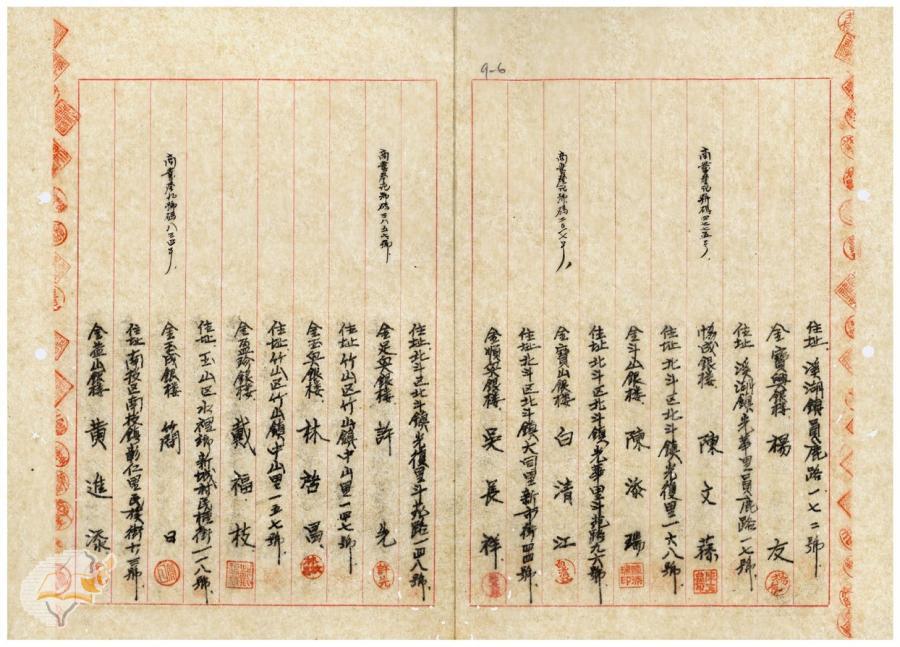 9-6
住址 溪湖鎮員鹿路一七二號
金寶興銀樓 楊 友
住址 溪湖鎮光華里員鹿路一七號
協成銀樓 陳文蓀
住址 北斗区北斗鎮光復里一六八號
金斗山銀樓 陳添瑞
住址 北斗区北斗鎮光華里斗苑路九六號
金寶山銀樓 白清江
住址 北斗区北斗鎮大同里新市街四四號
金順興銀樓 吳長祥
住址 北斗区北斗鎮光復里斗苑路一四八號
商業登記號碼三八五六號
金足興銀樓 許 光
住址 竹山区竹山鎮中山里一四七號
金玉興銀樓 林啓昌
住址 竹山区竹山鎮中山里一五七號
金盈珍銀樓 戴福枝
住址 玉山区水裡鄉新城村民權街一一八號
金玉成銀樓 簡 日
住址 南投区南投鎮彰仁里民族街十三號
金益山銀樓 黃進添